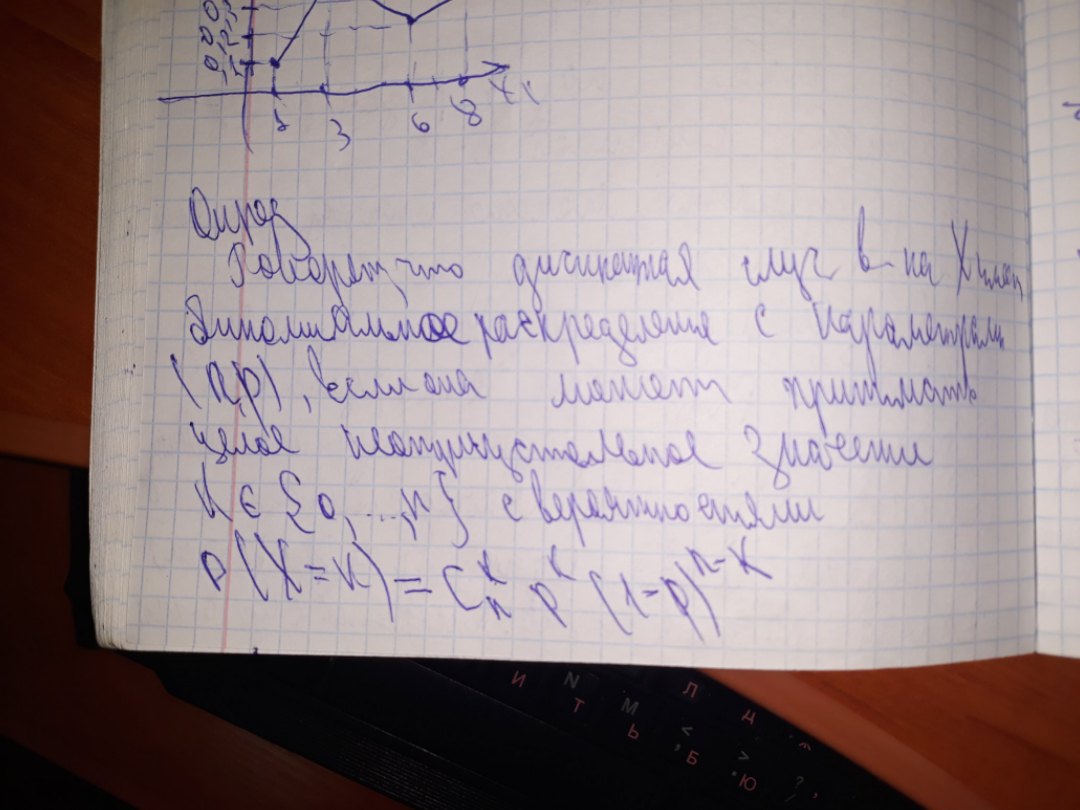 0,
0,2
0,1
1 3 6 8 Xi
Опред
Говорят, что дискретная случ в-на X имеет
биномиальное распределение с параметрами
(n,p), если она может принимать
целое неотрицательное значение
K ∈ {0,...,n} с вероятностями
P(X=K) = Cₙᴷ pᴷ (1-p)ⁿ⁻ᴷ
И N Л Д
Т М < >
Ь , Б . Ю ?